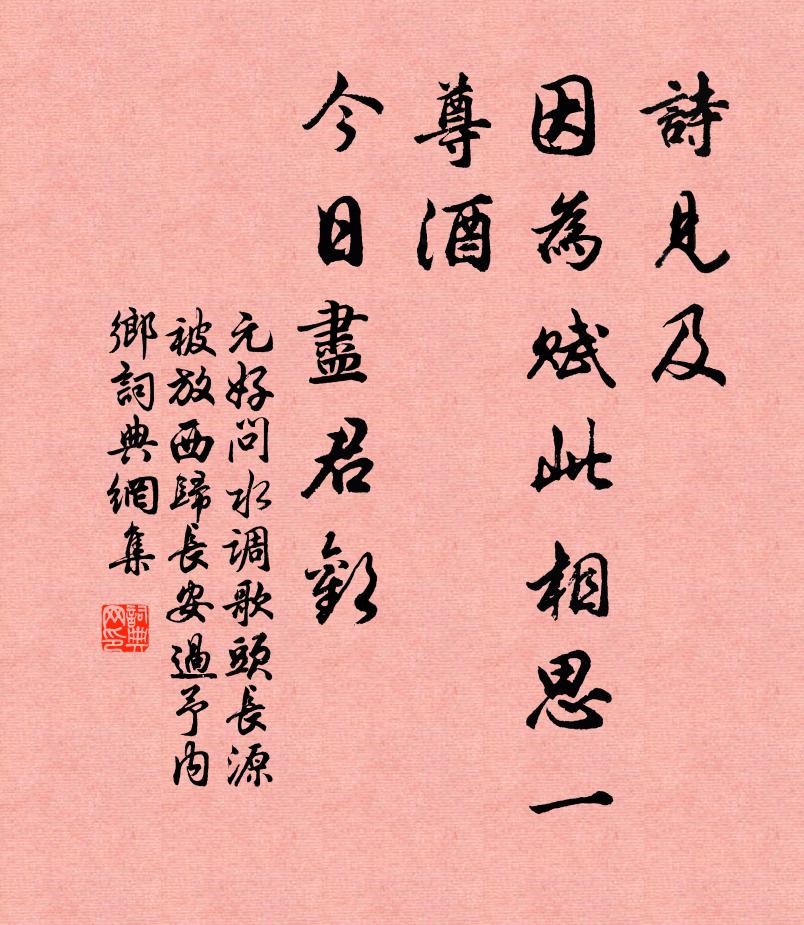 詩見及
因為賦此相思一
尊酒
今日盡君歡
元好問水调歌頭長源
被放西歸長安過予内
鄉詞典網集
詞典网印